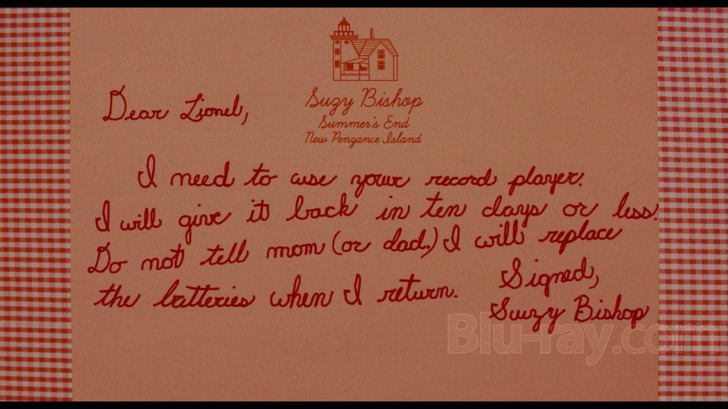 Suzy Bishop
Summer's End
New Penzance Island
Dear Lionel,
I need to use your record player.
I will give it back in ten days or less.
Do not tell mom (or dad.) I will replace
the batteries when I return.
Signed,
Suzy Bishop
Blu-ray.com